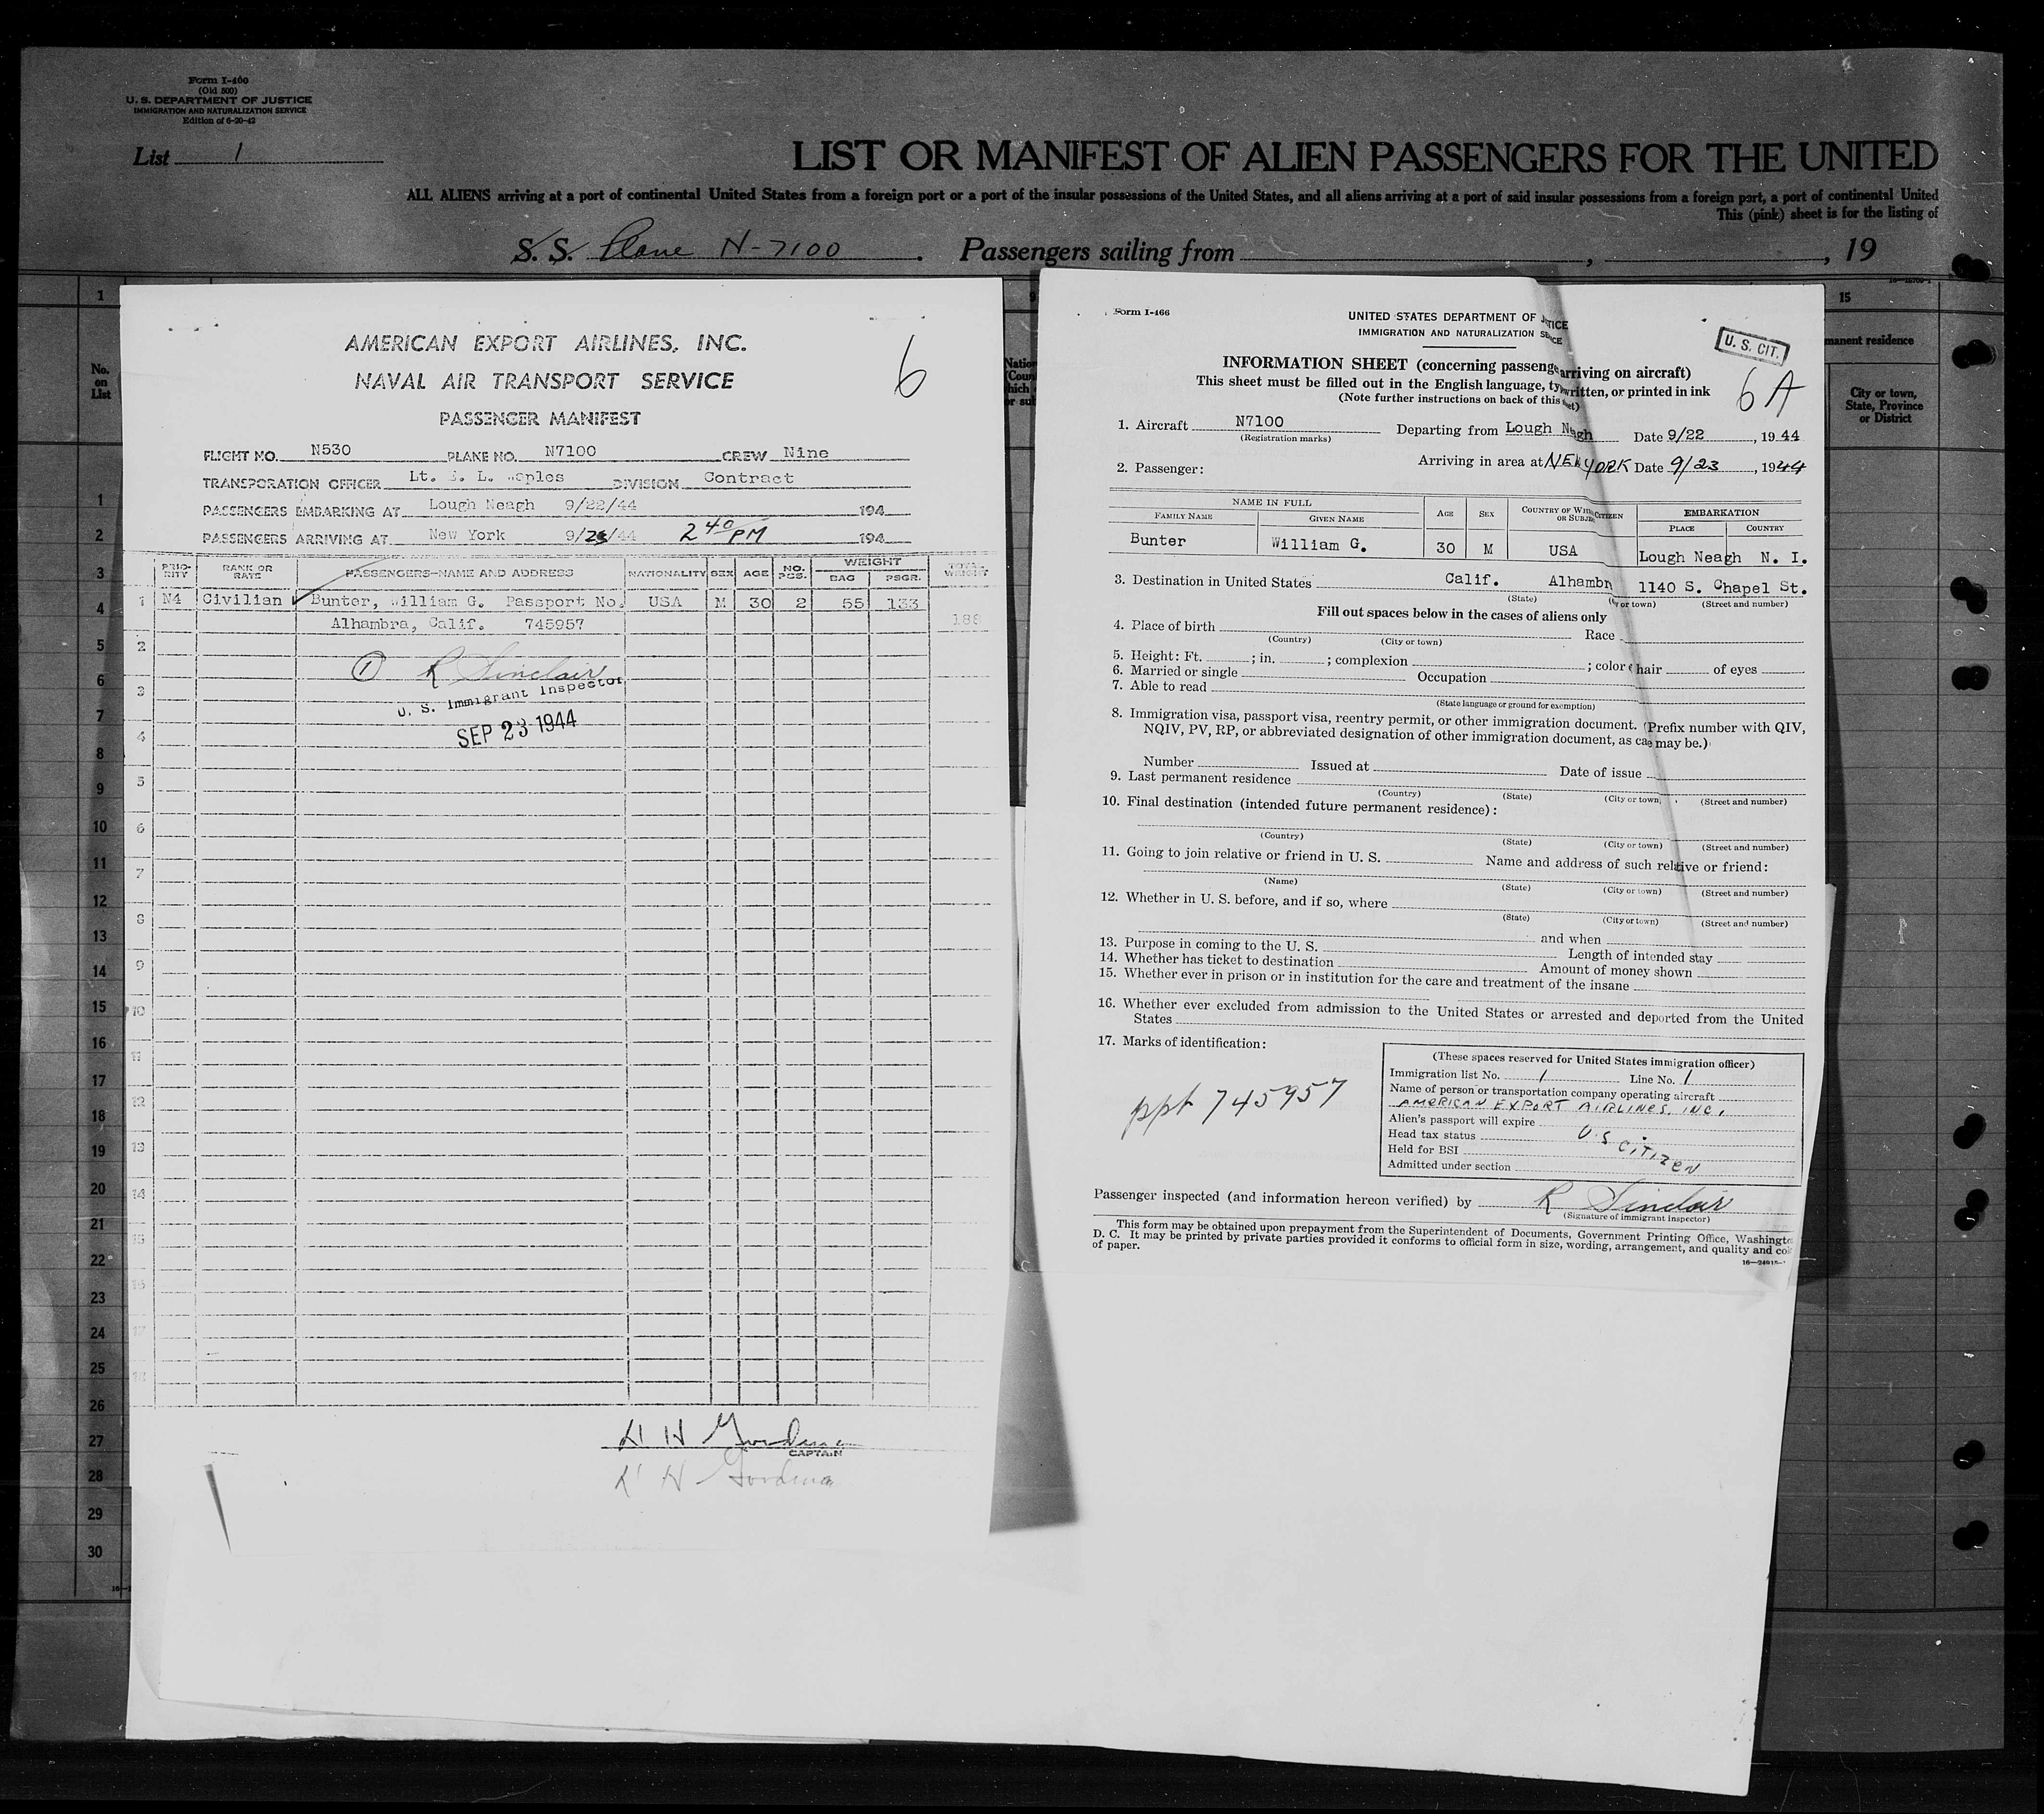 Form I-400
(Old 500)
U. S. DEPARTMENT OF JUSTICE
IMMIGRATION AND NATURALIZATION SERVICE
Edition of 6-20-42
List 1
LIST OR MANIFEST OF ALIEN PASSENGERS FOR THE UNITED
ALL ALIENS arriving at a port of continental United States from a foreign port or a port of the insular possessions of the United States, and all aliens arriving at a port of said insular possessions from a foreign port, a port of continental United
This (pink) sheet is for the listing of
S. S. Plane N-7100 . Passengers sailing from , , 19
1
15
No. on List
manent residence
City or town, State, Province or District
1
2
3
4
5
6
7
8
9
10
11
12
13
14
15
16
17
18
19
20
21
22
23
24
25
26
27
28
29
30
AMERICAN EXPORT AIRLINES, INC.
6
NAVAL AIR TRANSPORT SERVICE
PASSENGER MANIFEST
FLIGHT NO. N530 PLANE NO. N7100 CREW Nine
TRANSPORATION OFFICER Lt. L. DIVISION Contract
PASSENGERS EMBARKING AT Lough Neagh 9/22/44 194
PASSENGERS ARRIVING AT New York 9/23/44 2 40/PM 194
PRIORITY RANK OR RATE PASSENGERS-NAME AND ADDRESS NATIONALITY SEX AGE NO. PCS. WEIGHT BAG PSGR. TOTAL WEIGHT
1 N4 Civilian Bunter, William G. Passport No. USA M 30 2 55 133
Alhambra, Calif. 745957 188
2
1 R Sinclair
U. S. Immigrant Inspector
3
SEP 23 1944
4
5
6
7
8
9
10
11
12
13
14
CAPTAIN
Form I-466
UNITED STATES DEPARTMENT OF JUSTICE
IMMIGRATION AND NATURALIZATION SERVICE
U. S. CIT.
INFORMATION SHEET (concerning passenge arriving on aircraft)
This sheet must be filled out in the English language, typewritten, or printed in ink
(Note further instructions on back of this sheet)
6A
1. Aircraft N7100 Departing from Lough Neagh Date 9/22, 1944
(Registration marks)
2. Passenger: Arriving in area at NEW YORK Date 9/23, 1944
NAME IN FULL AGE SEX COUNTRY OF WHICH CITIZEN OR SUBJECT EMBARKATION
FAMILY NAME GIVEN NAME PLACE COUNTRY
Bunter William G. 30 M USA Lough Neagh N. I.
3. Destination in United States Calif. Alhambr 1140 S. Chapel St.
(State) (City or town) (Street and number)
Fill out spaces below in the cases of aliens only
4. Place of birth Race
(Country) (City or town)
5. Height: Ft. ; in. ; complexion ; color of hair of eyes
6. Married or single Occupation
7. Able to read
(State language or ground for exemption)
8. Immigration visa, passport visa, reentry permit, or other immigration document. (Prefix number with QIV,
NQIV, PV, RP, or abbreviated designation of other immigration document, as case may be.)
Number Issued at Date of issue
9. Last permanent residence
(Country) (State) (City or town) (Street and number)
10. Final destination (intended future permanent residence):
(Country) (State) (City or town) (Street and number)
11. Going to join relative or friend in U. S. Name and address of such relative or friend:
(Name) (State) (City or town) (Street and number)
12. Whether in U. S. before, and if so, where
(State) (City or town) (Street and number)
and when
13. Purpose in coming to the U. S. Length of intended stay
14. Whether has ticket to destination Amount of money shown
15. Whether ever in prison or in institution for the care and treatment of the insane
16. Whether ever excluded from admission to the United States or arrested and deported from the United
States
17. Marks of identification:
ppt 745957
(These spaces reserved for United States immigration officer)
Immigration list No. 1 Line No. 1
Name of person or transportation company operating aircraft
AMERICAN EXPORT AIRLINES, INC.
Alien's passport will expire
Head tax status U.S CITIZEN
Held for BSI
Admitted under section
Passenger inspected (and information hereon verified) by R Sinclair
(Signature of immigrant inspector)
This form may be obtained upon prepayment from the Superintendent of Documents, Government Printing Office, Washingto
D. C. It may be printed by private parties provided it conforms to official form in size, wording, arrangement, and quality and col
of paper.